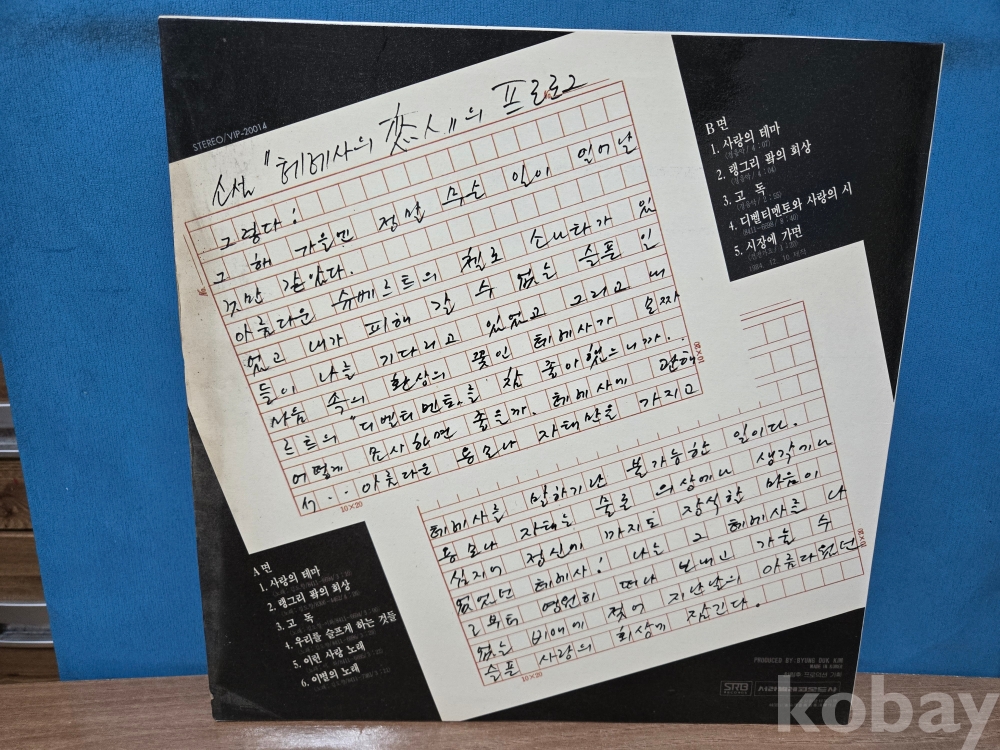 STEREO/VIP-20014
소설 "헤메사의 恋人"의 프로로그
그렇다!
그 해 가을엔 정말 슬픈 일이 일어날
것만 같았다.
아름다운 슈베르트의 첼로 소나타가 있
었고 내가 피해 갈 수 없는 슬픈 인
들이 나를 기다리고 있었고 그리고 내
마음 속의 환상의 꽃인 헤메사가 모짜
르트의 "디벨티멘토"를 참 좋아했으니까.
어떻게 묘사하면 좋을까. 헤메사에 관해
서.. 아름다운 용모나 자태만을 가지고
10×20
헤메사를 말하기란 불가능한 일이다.
용모나 자태는 물론 의상에나 생각키나
심지어 정신에 까지도 장식한 마음이
없었던 헤메사! 나는 그 헤메사를 나
로부터 영원히 떠나 보내고 가눌 수
없는 비애에 젖어 지난날의 아름다웠던
슬픈 사랑의 회상에 잠긴다.
10×20
B면
1. 사랑의 테마
(경음악/4:07)
2. 랭그리 팍의 회상
(경음악/4:04)
3. 고 독
(경음악/2:55)
4. 디벨티멘토와 사랑의 시
5. 시장에 가면
1984. 12. 10 제작
A면
1. 사랑의 테마
2. 랭그리 팍의 회상
3. 고 독
4. 우리를 슬프게 하는 것들
5. 이런 사랑 노래
6. 이별의 노래
PRODUCED BY/BYUNG DUK KIM
MADE IN KOREA
SRB 서라벌레코오드사
kobay